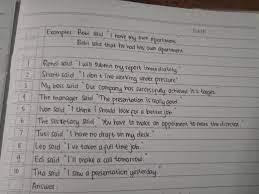 Example: Bobi said "I have my own apartment.
Bobi said that he had his own apartment
1 Rendi said "I will submit my report immediately"
2 Shanti said "I don't like working under pressure"
3 My boss said "Our company has successfully achieved it's target
4 The manager said "The presentation is really good.
5 Ivan said "I think I should look for a better job
6 The secretary said "You have to make an appointment to meet the director.
7 Tusi said "I have no draft on my desk."
8 Leo said "I've taken a full time job.
9 Edi said "I'll make a call tomorrow.
10 Tha said "I saw a presentation yesterday.
Answer: